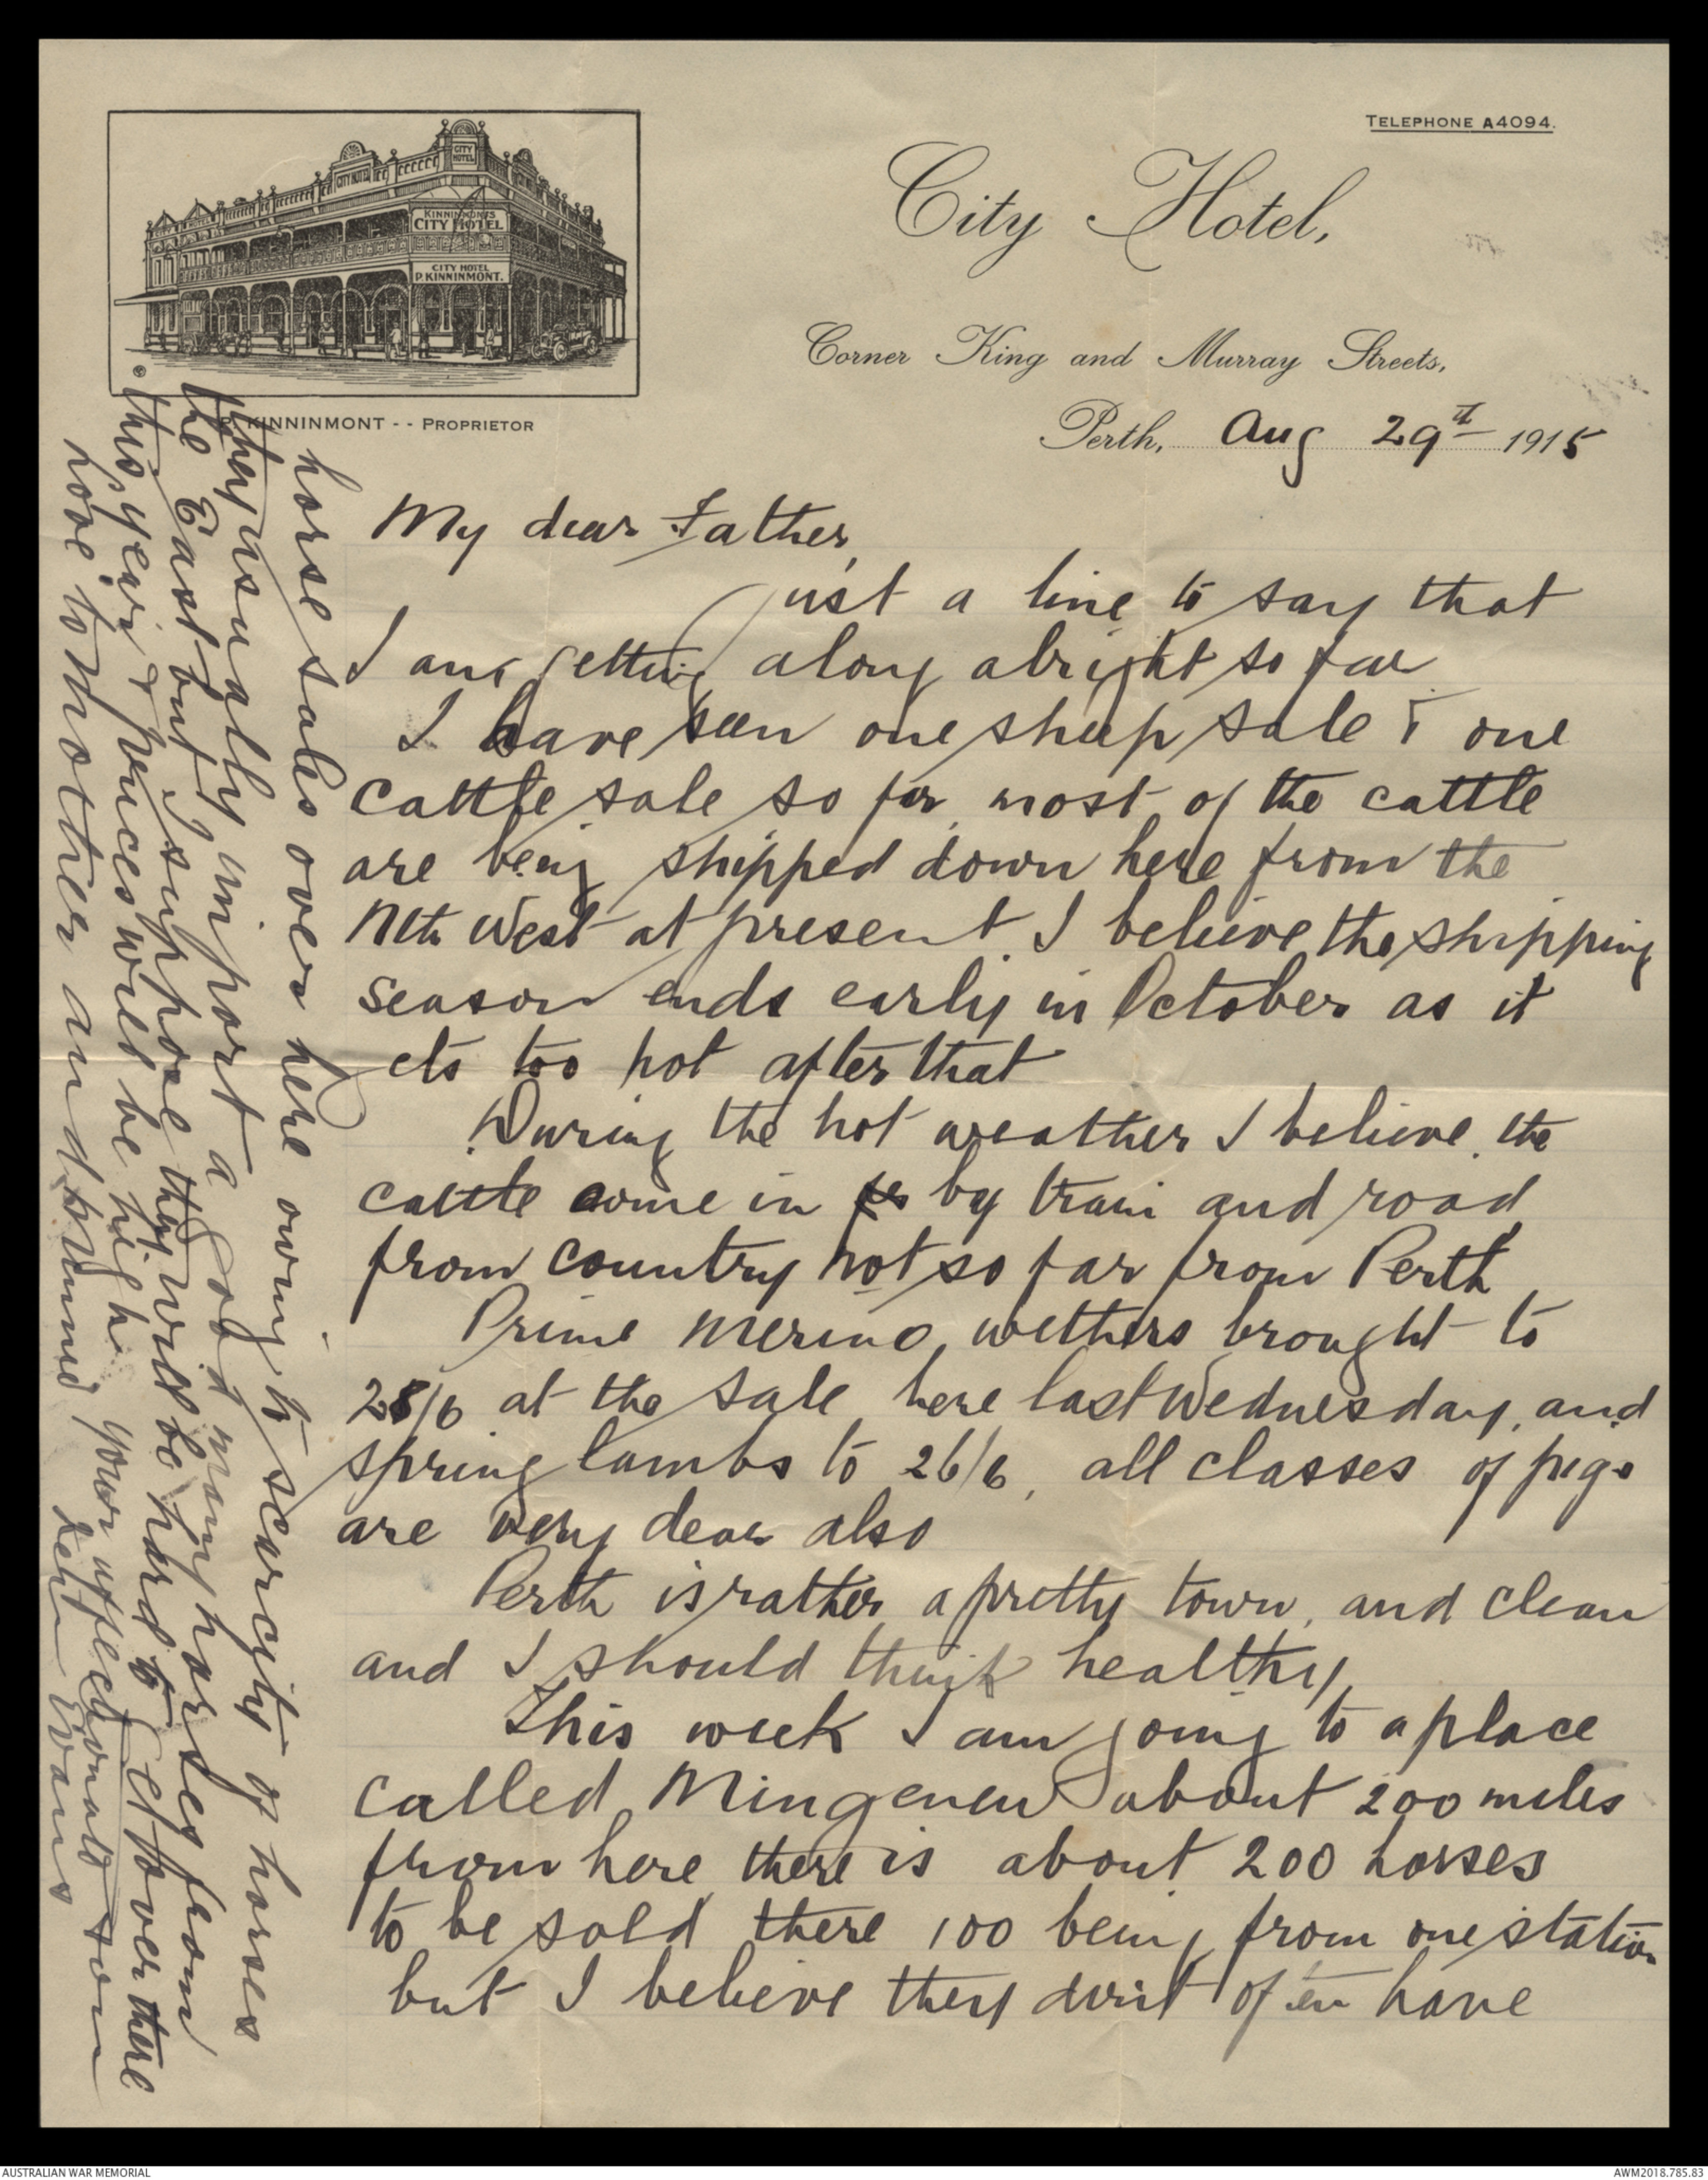 TELEPHONE A4094.
CITY HOTEL
CITY HOTEL
KINNINMONT'S
CITY HOTEL
CITY HOTEL
P. KINNINMONT.
P. KINNINMONT - - PROPRIETOR
City Hotel,
Corner King and Murray Streets,
Perth, Aug 29th 1915
My dear Father,
Just a line to say that
I am getting along alright so far
I have seen one sheep sale & one
cattle sale so far, most of the cattle
are being shipped down here from the
Nth West at present. I believe the shipping
season ends early in October as it
gets too hot after that
During the hot weather I believe the
cattle come in by train and road
from country not so far from Perth
Prime merino wethers brought to
28/6 at the sale here last Wednesday, and
spring lambs to 26/6, all classes of pigs
are very dear also
Perth is rather a pretty town, and clean
and I should think healthy,
This week I am going to a place
called Mingenew about 200 miles
from here there is about 200 horses
to be sold there 100 being from one station
but I believe they dont often have
horse sales over here owing to scarcity of horses
they usually import a good many horses from
the East but I suppose they will be hard to get over there
this year & prices would be high.
Love to Mother and
your affectionate son
Evans